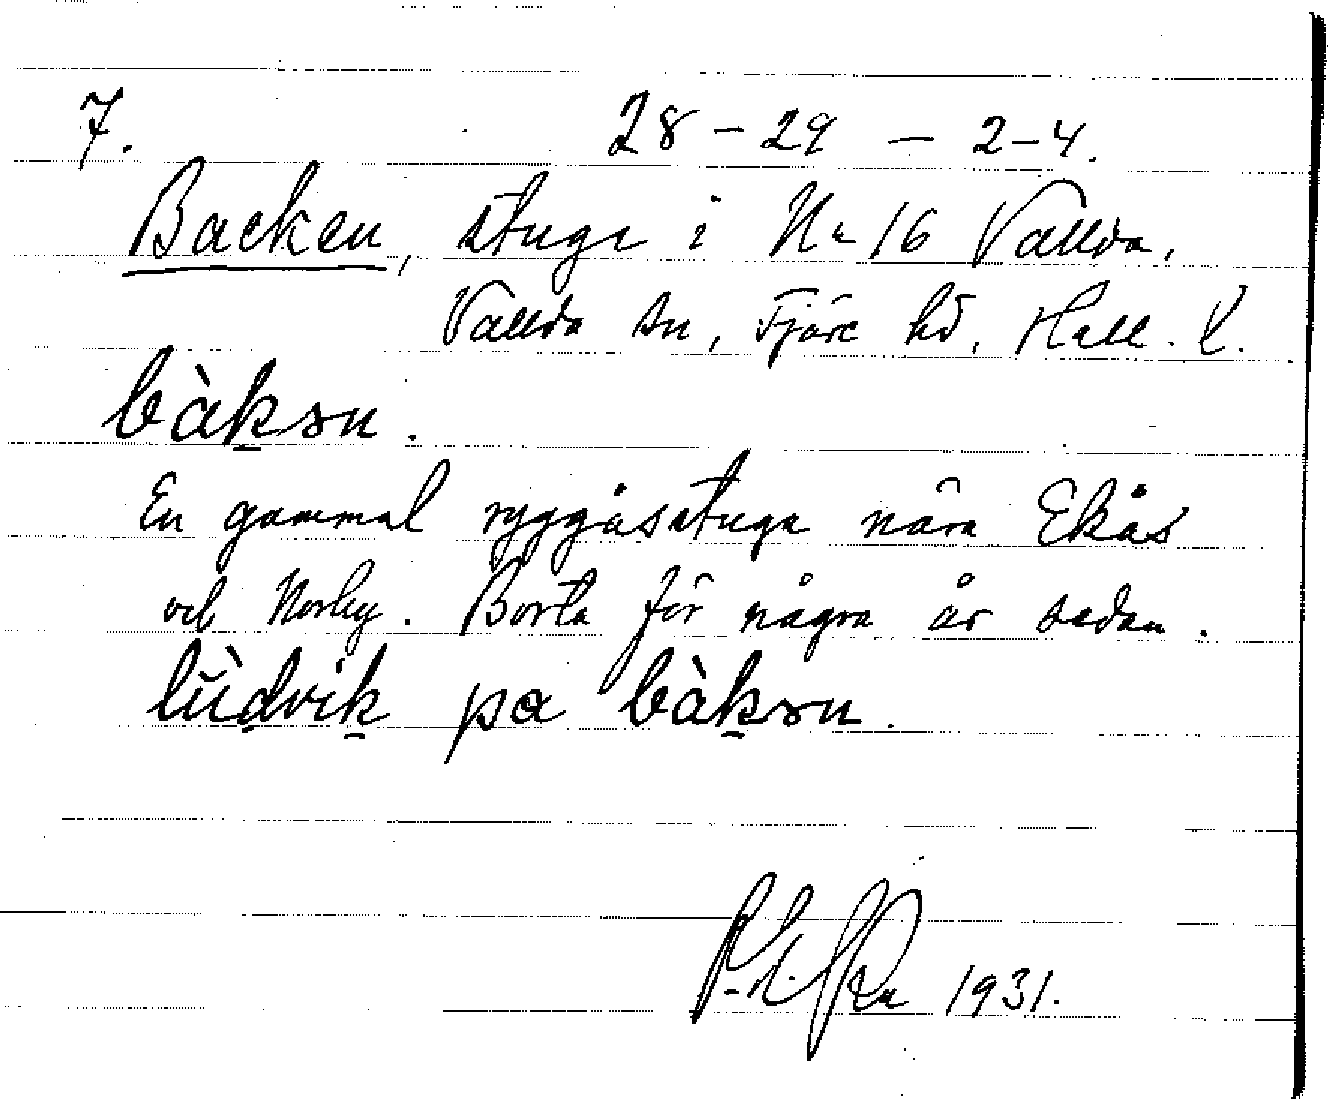 7. 28-29 - 2-4.
Backen, stuga i N:r 16 Vallda,
Vallda sn, Fjäre hd, Hall. l.
bàkən.
En gammal ryggåsstuga nära Ekås
och Norby. Borta för några år sedan.
lŭ̀dvik pa bàkən.
1931.